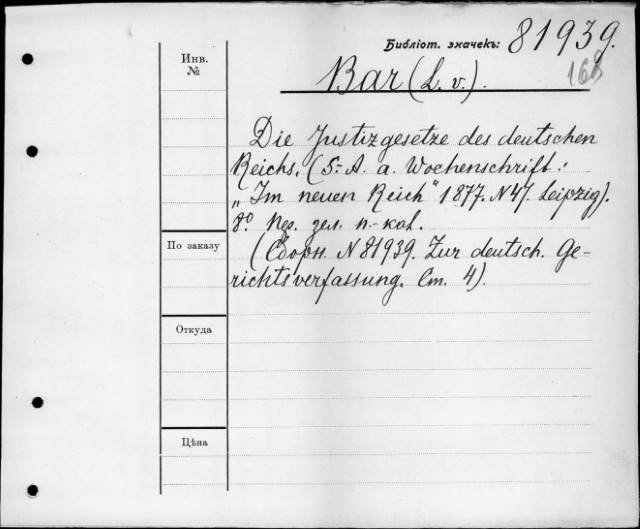 Библіот. значекъ: 81939.
168
Инв.
№
Bar (L. v.).
Die Justizgesetze des deutschen
Reichs. (S.-A. a. Wochenschrift:
„Im neuen Reich" 1877. N 47. Leipzig).
8º. Пер. зел. п.-кол.
(Сборн. N 81939. Zur deutsch. Ge-
richtsverfassung. Ст. 4).
По заказу
Откуда
Цѣна